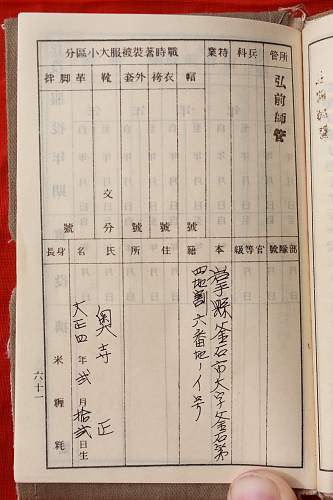 所管
弘前師管
兵科
特業
戰時著裝被服大小區分
帽
號
衣袴
號
外套
號
靴
文
分
革脚絆
號
部隊號
官等級
本籍
岩手縣釜石市大字釜石第
四地割六番地ノイ号
住所
氏名
奥寺 正
大正四年弐月拾弐日生
身長
米 糎 粍
六十一